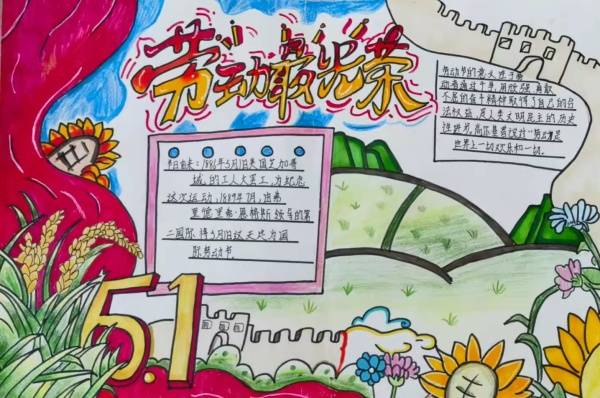 劳动最光荣
节日由来:1886年5月1日美国芝加哥
城,的工人大罢工,为纪念
这次运动,1889年7月,由弗
里德里希·恩格斯领导的第
二国际将5月1日这天定为国
际劳动节
劳动节的意义在于劳
动者通过斗争,用顽强,英勇
不屈的奋斗精神取得了自己的合
法权益,是人类文明民主的历史
性进步,高尔基曾说过"劳动是
世界上一切欢乐和一切.
5.1